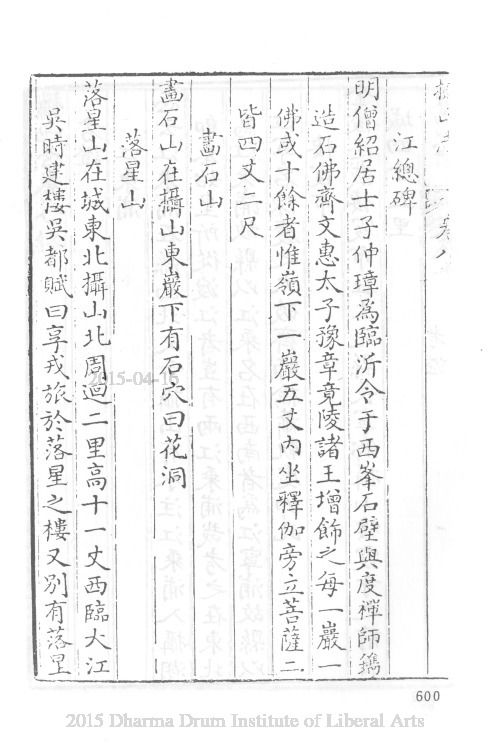 江總碑
明僧紹居士子仲璋為臨沂令于西峯石壁與度禪師鐫
造石佛齊文惠太子豫章竟陵諸王增飾之每一巖一
佛或十餘者惟嶺下一巖五丈內坐釋伽旁立菩薩二
皆四丈二尺
畵石山
畵石山在攝山東巖下有石穴曰花洞
落星山
落星山在城東北攝山北周迴二里高十一丈西臨大江
吳時建樓吳都賦曰享戎旅於落星之樓又別有落星
600
2015-04-16
2015 Dharma Drum Institute of Liberal Arts